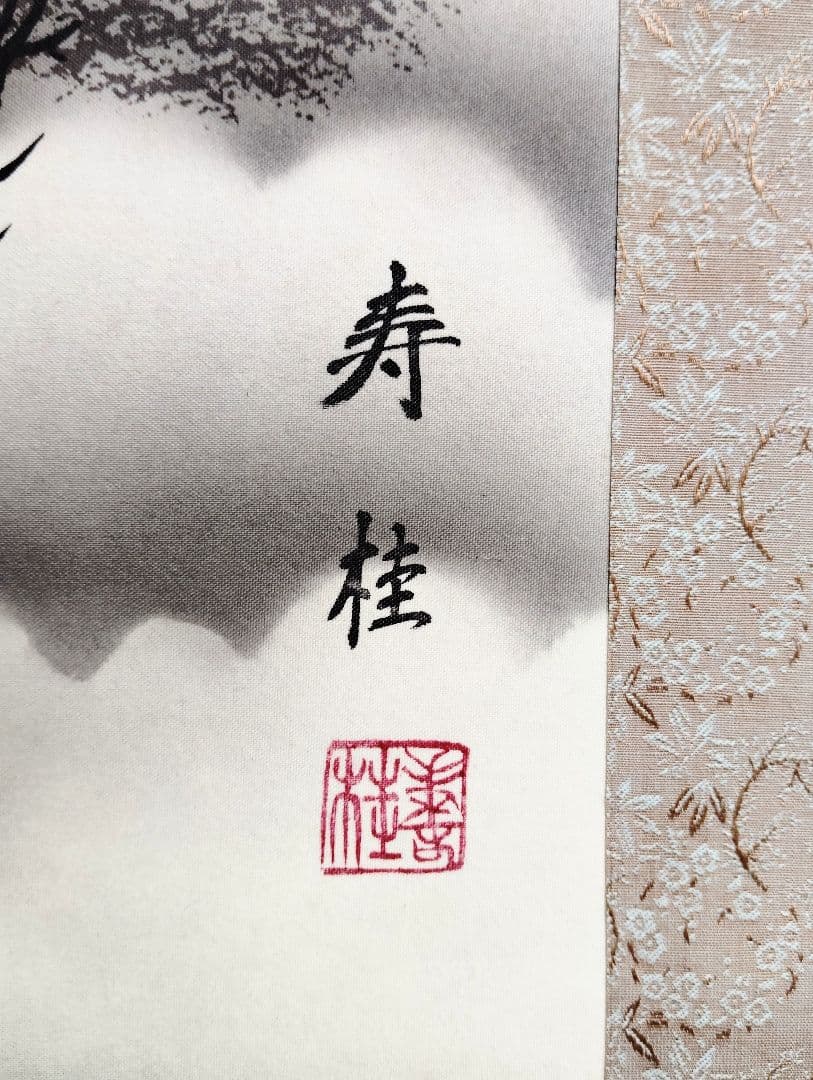 寿桂
壽桂